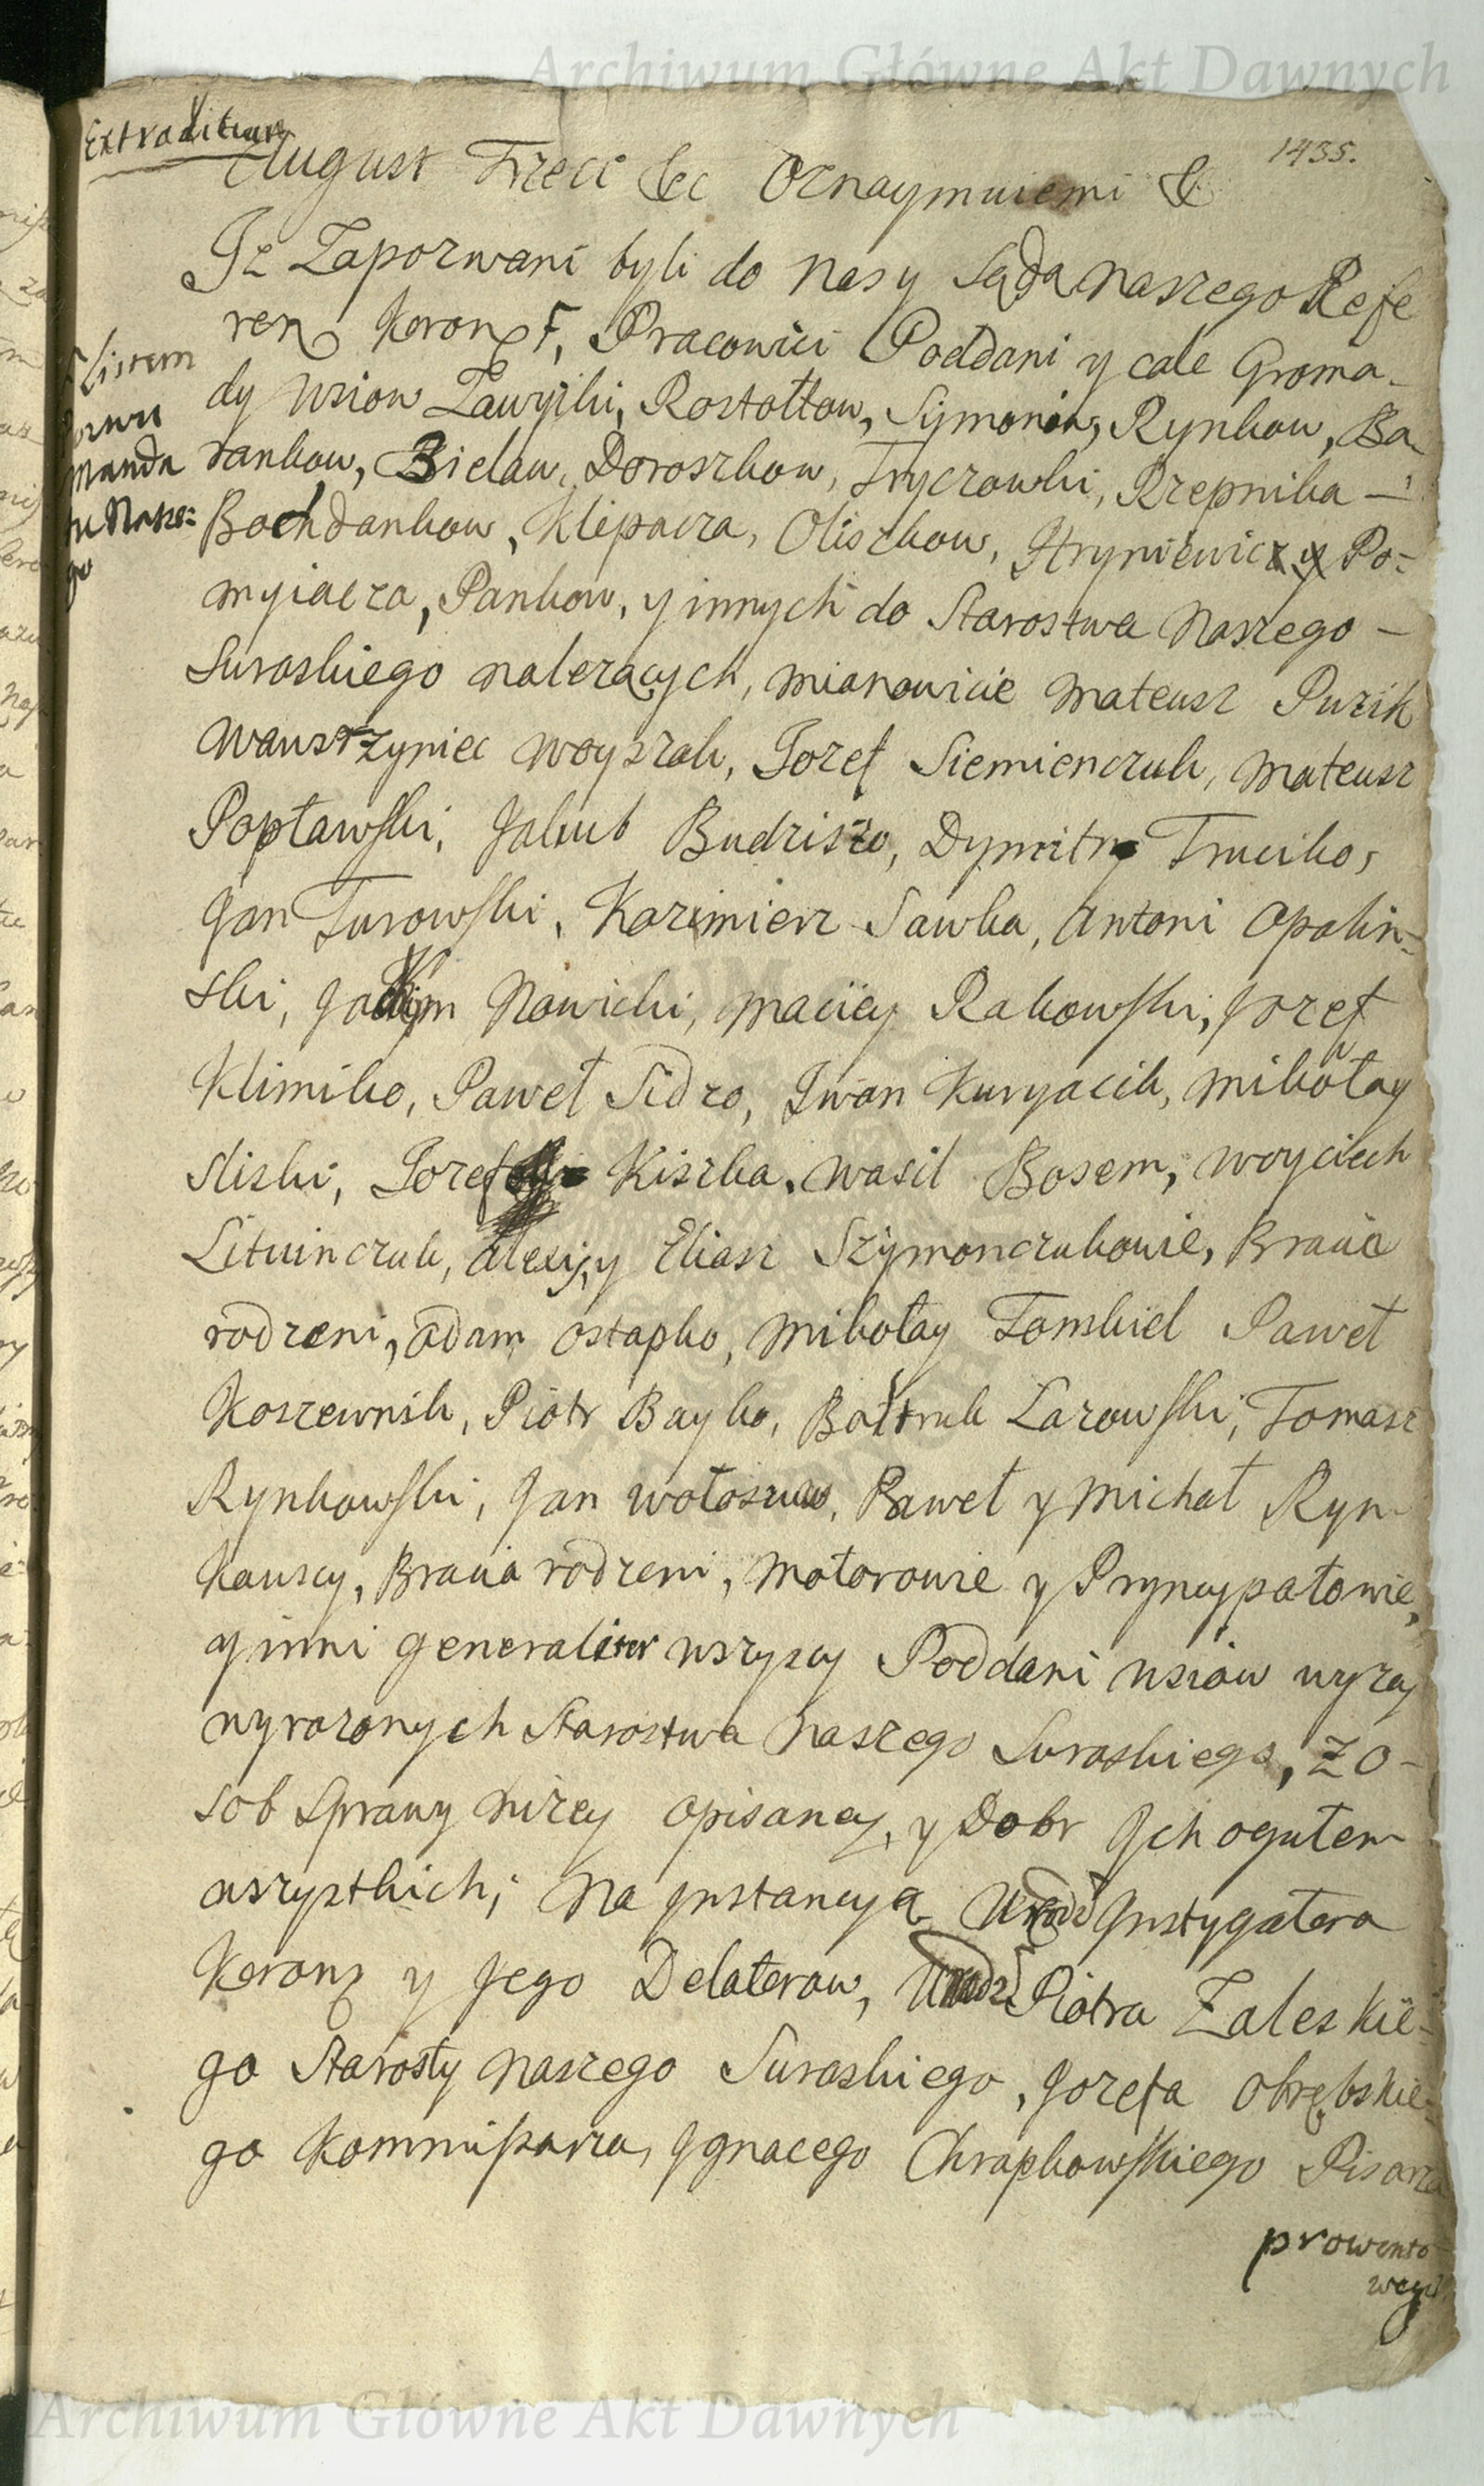 Archiwum Główne Akt Dawnych
Extraditum
1435.
August Trzeci &c Oznaymuiemi &
Iż Zapozwani byli do Nas y Sądu Naszego Refe
ren Koron F, Pracowici Poddani y cale Groma-
dy Wsiow Zawyki, Rostołtow, Symonow, Rynkow, Ba
rankow, Bielaw, Doroszkow, Tryczowki, Rzepnika —
Bochdankow, Klepacza, Oliszkow, Hryniewicz y Po-
myiacza, Pankow, y innych do Starostwa Naszego —
Suraskiego należących, mianowicie Mateusz Puzik
Wawrzyniec Woyszak, Jozef Siemienczuk, Mateusz
Popławski, Jakub Budzisz, Dymitr Truciko,
Jan Turowski, Kazimierz Sawka, Antoni Opalin-
ski, Joakim Nowicki, Maciey Rakowski, Jozef
Klimiko, Paweł Sidzo, Iwan Kuryacik, Mikołay
Sliski, Jozef Kiszka, Wasil Bosem, Woyciech
Litwinczuk, Alexij, y Eliasz Szymonczukowie, Bracia
rodzeni, Adam Ostapko, Mikołay Tomkiel Paweł
Koszewnik, Piotr Bayko, Bałtruk Lazowski, Tomasz
Rynkowski, Jan Wołoszuw, Paweł y Michał Ryn-
kowscy, Bracia rodzeni, Motorowie y Pryncypałowie,
y inni generaliter wszyscy Poddani wsiow wyzey
wyrażonych Starostwa Naszego Suraskiego, z O-
sob Sprawy niżey opisaney, y Dobr Ich ogułem
wszystkich; Na Instancyą Urodz Instygatora
Koron y Jego Delatorow, Urodz Piotra Zaleskie-
go Starosty Naszego Suraskiego, Jozefa Obrębskie-
go Kommissarza, Ignacego Chrapkowskiego Pisarza
prowento-
wego
F listem
Manda
tu Nasze-
go
Archiwum Główne Akt Dawnych